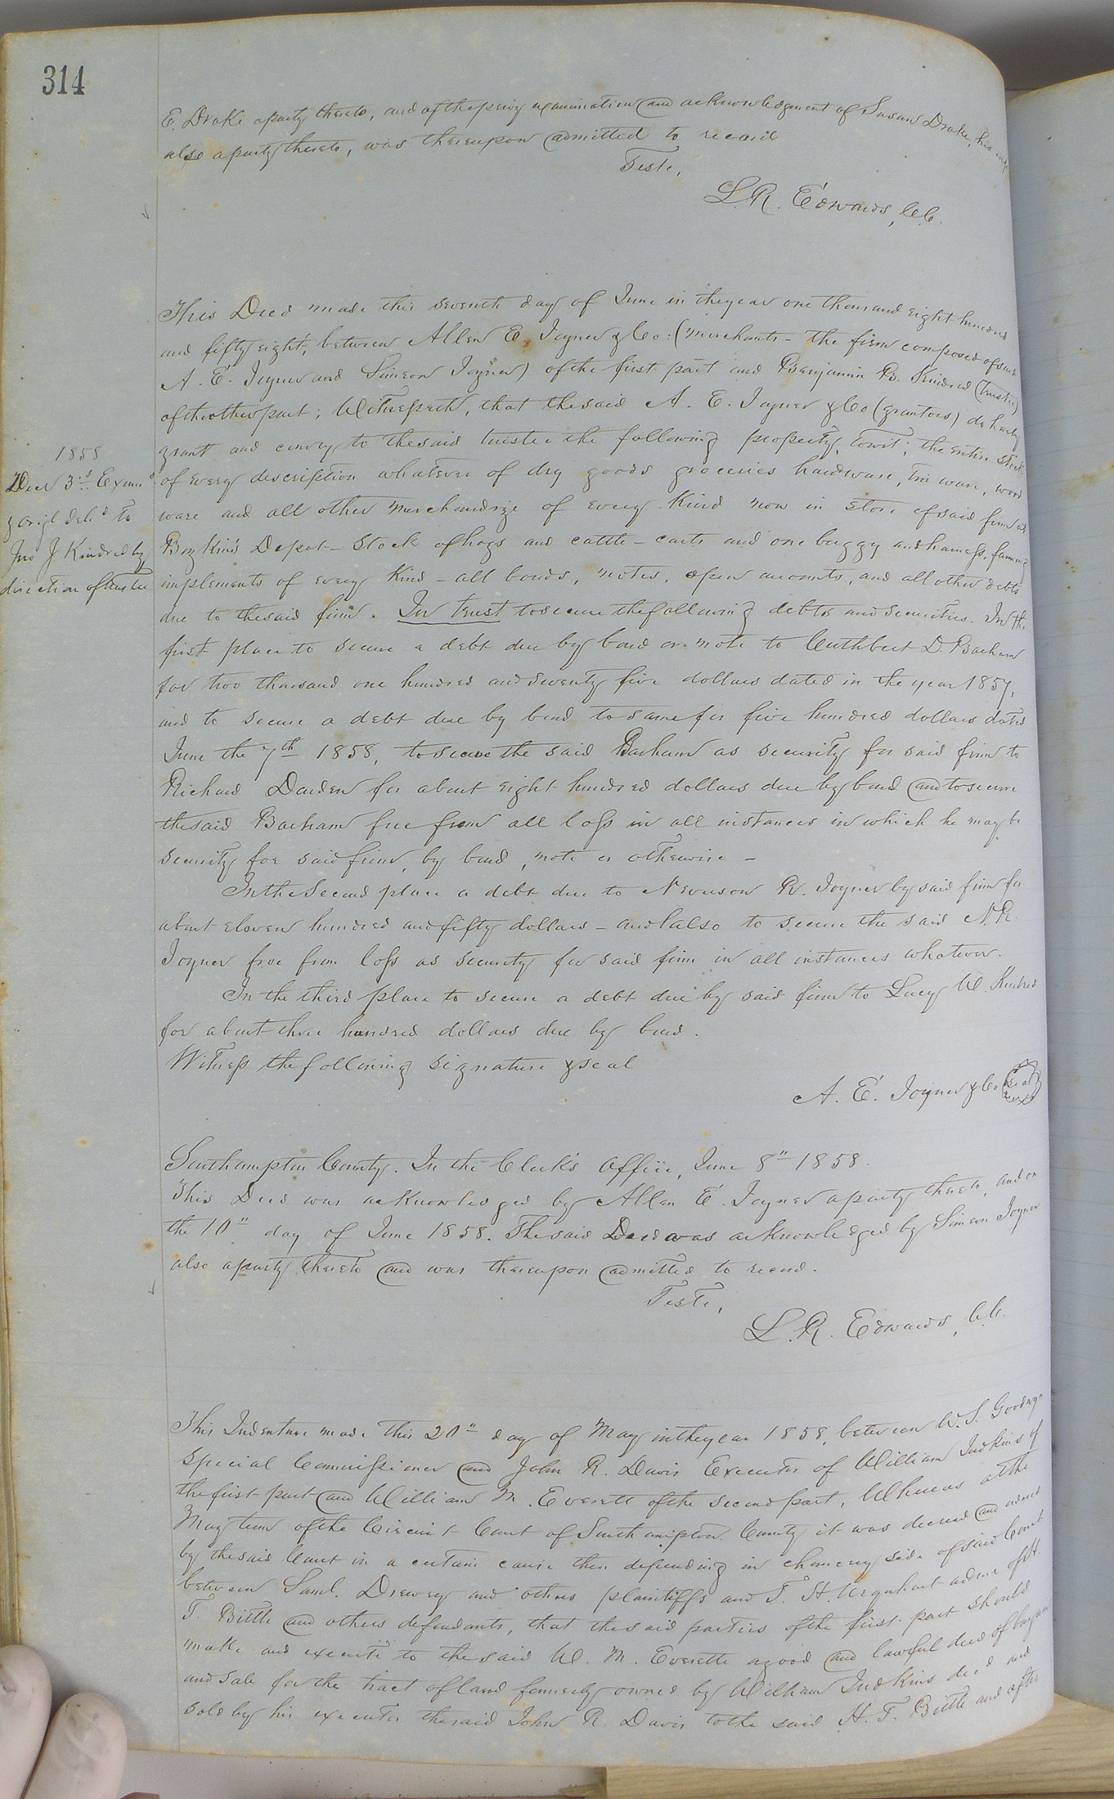 314
E. Drake a party thereto, and of the privy examination and acknowledgment of Susan Drake, his wife
also a party thereto, was thereupon admitted to record
Teste,
L. R. Edwards, C.C.
This Deed made this seventh day of June in the year one thousand eight hundred
and fifty eight, between Allen E. Joyner & Co. (merchants - the firm composed of said
A. E. Joyner and Simeon Joyner) of the first part and Benjamin B. Kindred (trustee)
of the other part; Witnesseth, that the said A. E. Joyner & Co (grantors) do hereby
grant and convey to the said trustee the following property, towit; the entire stock
of every description whatever of dry goods groceries hardware, tin ware, wood
ware and all other merchandize of every kind now in store of said firm at
Boykin's Depot - Stock of hogs and cattle - carts and one buggy and harness, farming
implements of every kind - all bonds, notes, open accounts, and all other debts
due to the said firm. In trust to secure the following debts and securities. In the
first place to secure a debt due by bond or note to Cuthbert D. Barham
for two thousand one hundred and seventy five dollars dated in the year 1857,
and to secure a debt due by bond to same for five hundred dollars dated
June the 7th 1858, to secure the said Barham as security for said firm to
Richard Darden for about eight hundred dollars due by bond and to secure
the said Barham free from all loss in all instances in which he may be
security for said firm, by bond, note or otherwise -
In the Second place a debt due to Neverson R. Joyner by said firm for
about eleven hundred and fifty dollars - and also to secure the said N. R.
Joyner free from loss as security for said firm in all instances whatever.
In the third place to secure a debt due by said firm to Lucy W. Kindred
for about three hundred dollars due by bond.
Witness the following signature & seal
A. E. Joyner & Co Seal
1858
Decr 3rd Exam
& origl deld to
Jno J Kindred by
direction of trustee
Southampton County. In the Clerk's Office, June 8" 1858.
This Deed was acknowledged by Allen E. Joyner a party thereto, and on
the 10" day of June 1858. The said Deed was acknowledged by Simeon Joyner
also a party thereto and was thereupon admitted to record.
Teste,
L. R. Edwards, C.C.
This Indenture made this 20" day of May in the year 1858, between W. S. Goodwyn
Special Commissioner and John R. Davis Executor of William Judkins of
the first part and William M. Everett of the second part, Whereas at the
May term of the Circuit Court of Southampton County it was decreed and ordered
by the said Court in a certain cause then depending in chancery side of said Court
between Saml. Drewry and others plaintiffs and T. H. Urquhart admr of H.
T. Bittle and others defendants, that the said parties of the first part should
make and execute to the said W. M. Everette a good and lawful deed of bargain
and sale for the tract of land formerly owned by William Judkins decd and
sold by his executor the said John R. Davis to the said H. T. Bittle and after